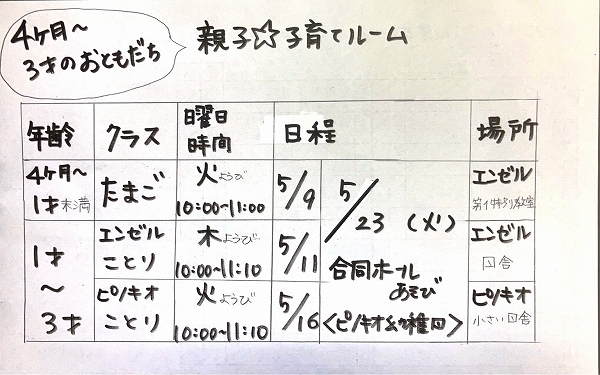 4ヶ月〜
3才のおともだち
親子☆子育てルーム
年齢 クラス 曜日 時間 日程 場所
4ヶ月〜 1才未満 たまご 火ようび 10:00〜11:00 5/9 エンゼル 第1特別教室
1才〜3才 エンゼル ことり 木ようび 10:00〜11:10 5/11 エンゼル 園舎
ピノキオ ことり 火ようび 10:00〜11:10 5/16 ピノキオ 小さい園舎
5/23(火)
合同ホール
あそび
<ピノキオ幼稚園>